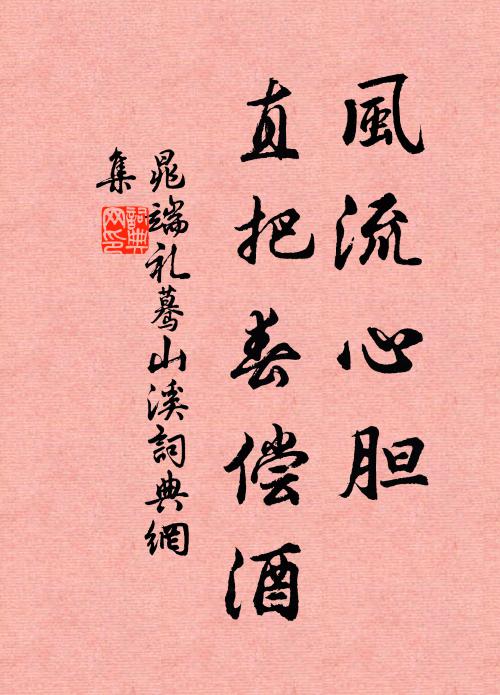 風流心胆
直把春偿酒
晁端礼蓦山溪詞典網
集
詞典
网印